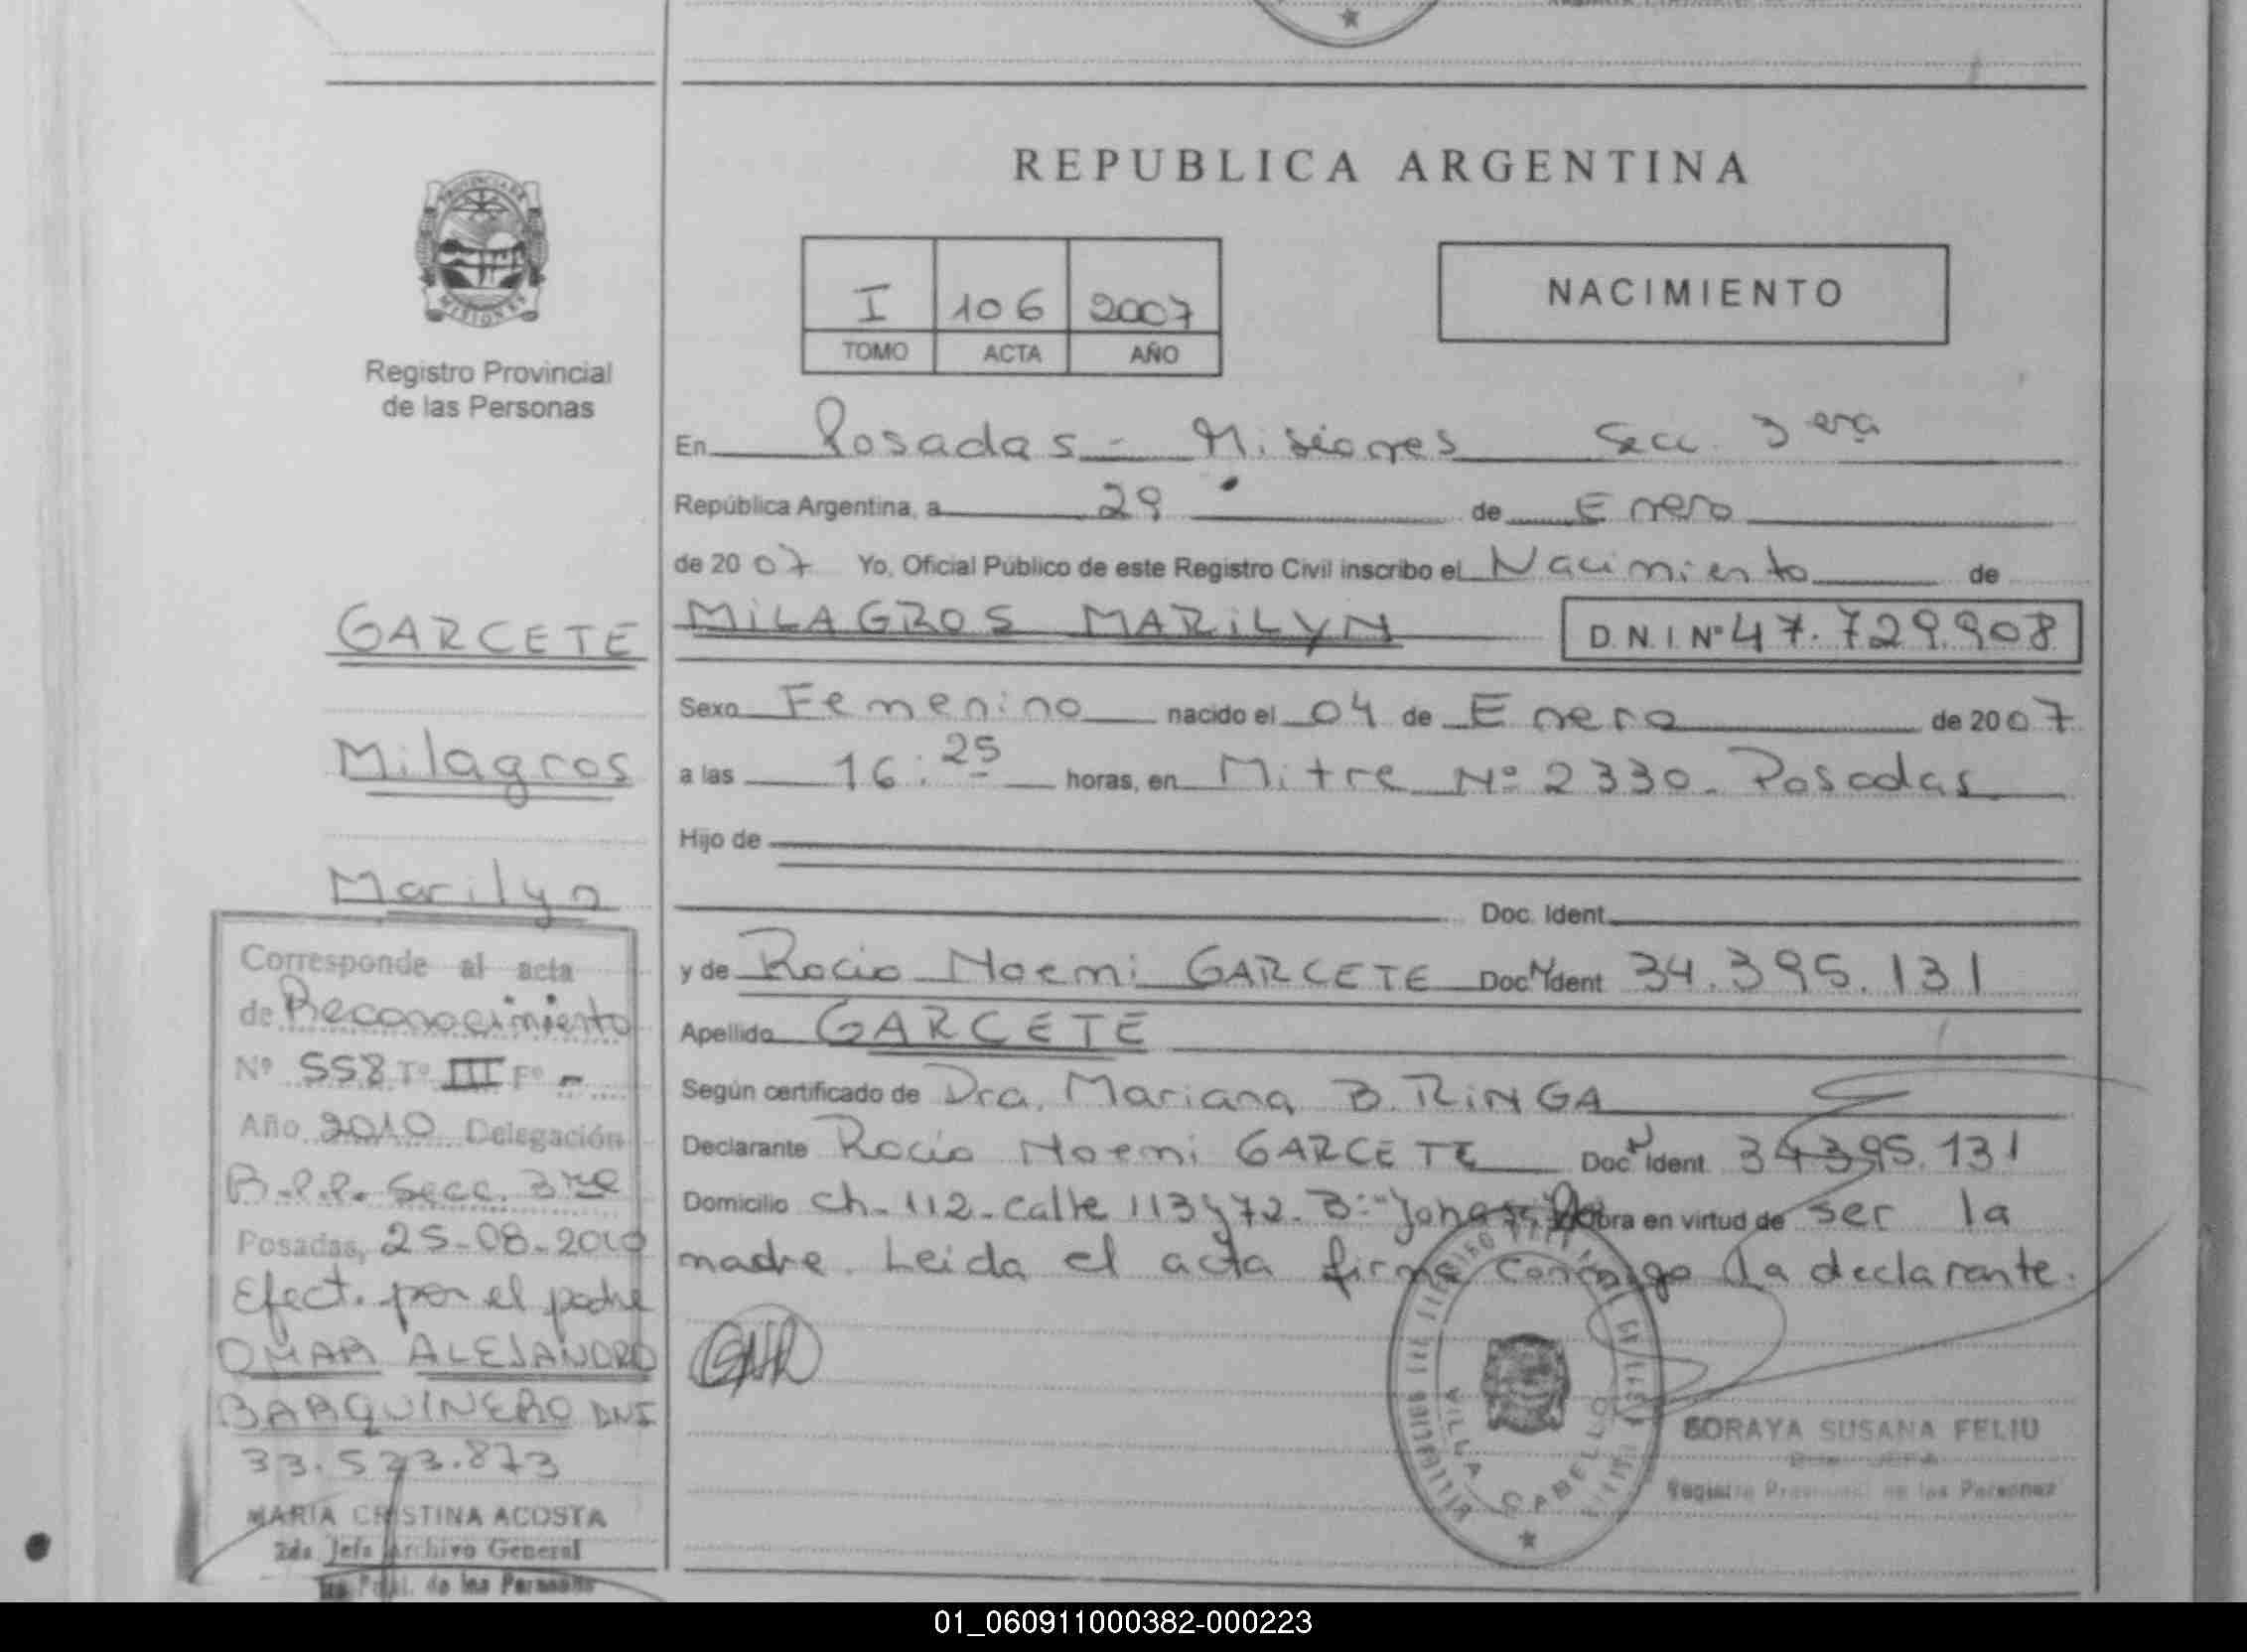 REPUBLICA ARGENTINA
PROVINCIA DE
MISIONES
Registro Provincial
de las Personas
I 106 2007
TOMO ACTA AÑO
NACIMIENTO
En Posadas - Misiones Secc. 3era
República Argentina, a 29 de Enero
de 2007 Yo, Oficial Público de este Registro Civil inscribo el Nacimiento de
MILAGROS MARILYN D.N.I. Nº 47.729.908
Sexo Femenino nacido el 04 de Enero de 2007
a las 16:25 horas, en Mitre Nº 2330. Posadas
Hijo de
Doc. Ident.
y de Rocio Noemi GARCETE Doc. Ident 34.395.131
Apellido GARCETE
Según certificado de Dra. Mariana B. RINGA
Declarante Rocio Noemi GARCETE Doc. Ident. 34395.131
Domicilio Ch. 112 - calle 113 y 72. Bº obra en virtud de ser la
madre. Leida el acta firma conmigo la declarante.
GARCETE
Milagros
Marilyn
Corresponde al acta
de Reconocimiento
Nº 558 Tº III Fº -
Año 2010 Delegación
R.P.P. Secc. 3ra
Posadas, 25-08-2010
Efect. por el padre
OMAR ALEJANDRO
BARQUINERO DNI
33.523.873
MARIA CRISTINA ACOSTA
2da Jefa Archivo General
de las Personas
VILLA CABELLO
SORAYA SUSANA FELIU
JEFA
Registro Provincial de las Personas
01_060911000382-000223